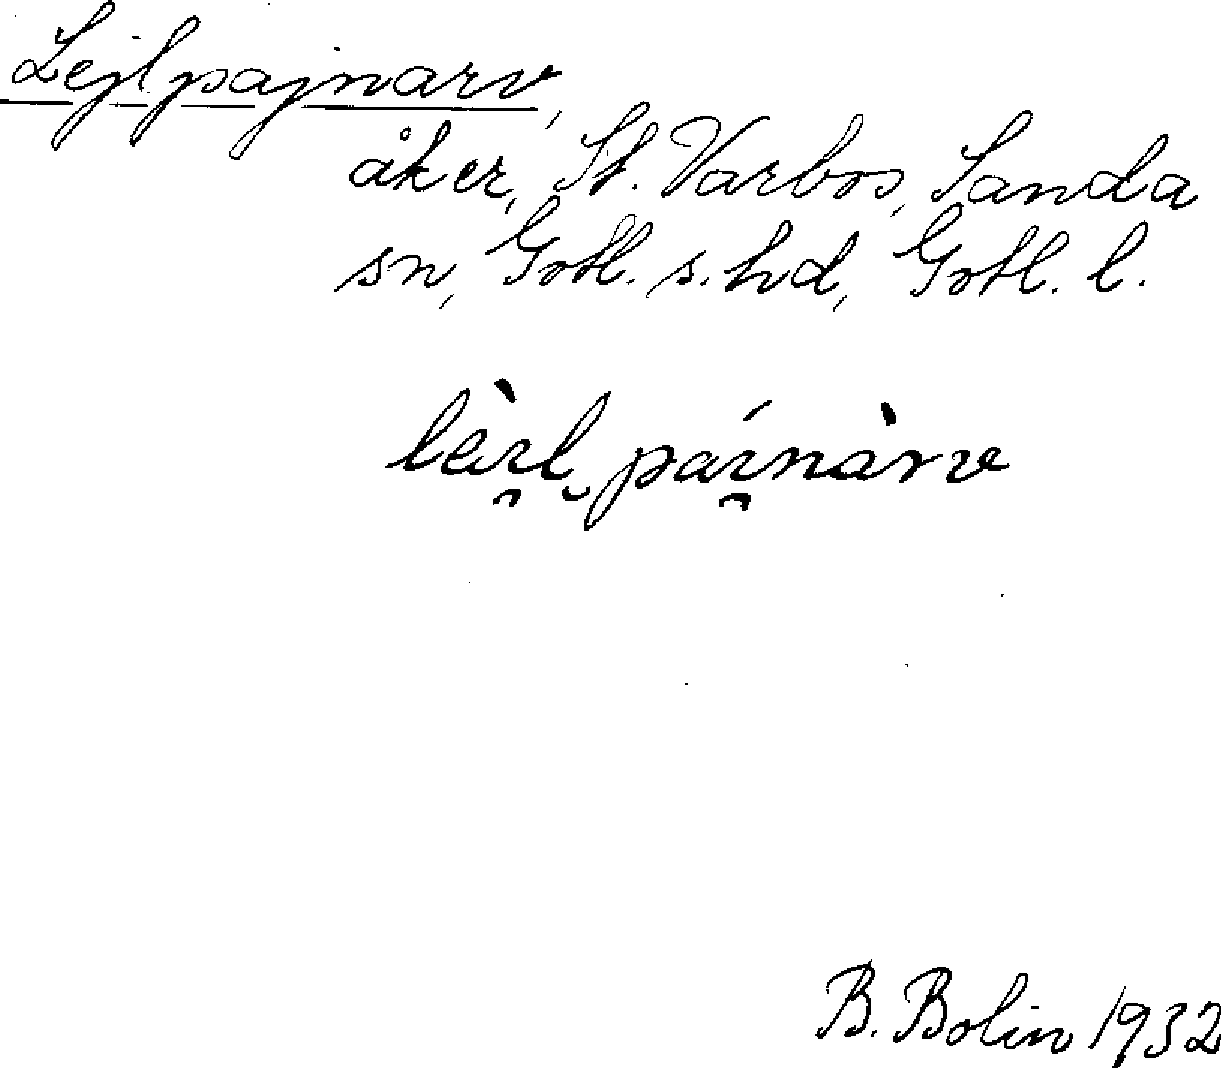 Lejlpajnarv,
åker, St. Varbos, Sanda
sn, Gotl. s. hd, Gotl. l.
lèi̯l̮ pái̯nàrv
B. Bolin 1932